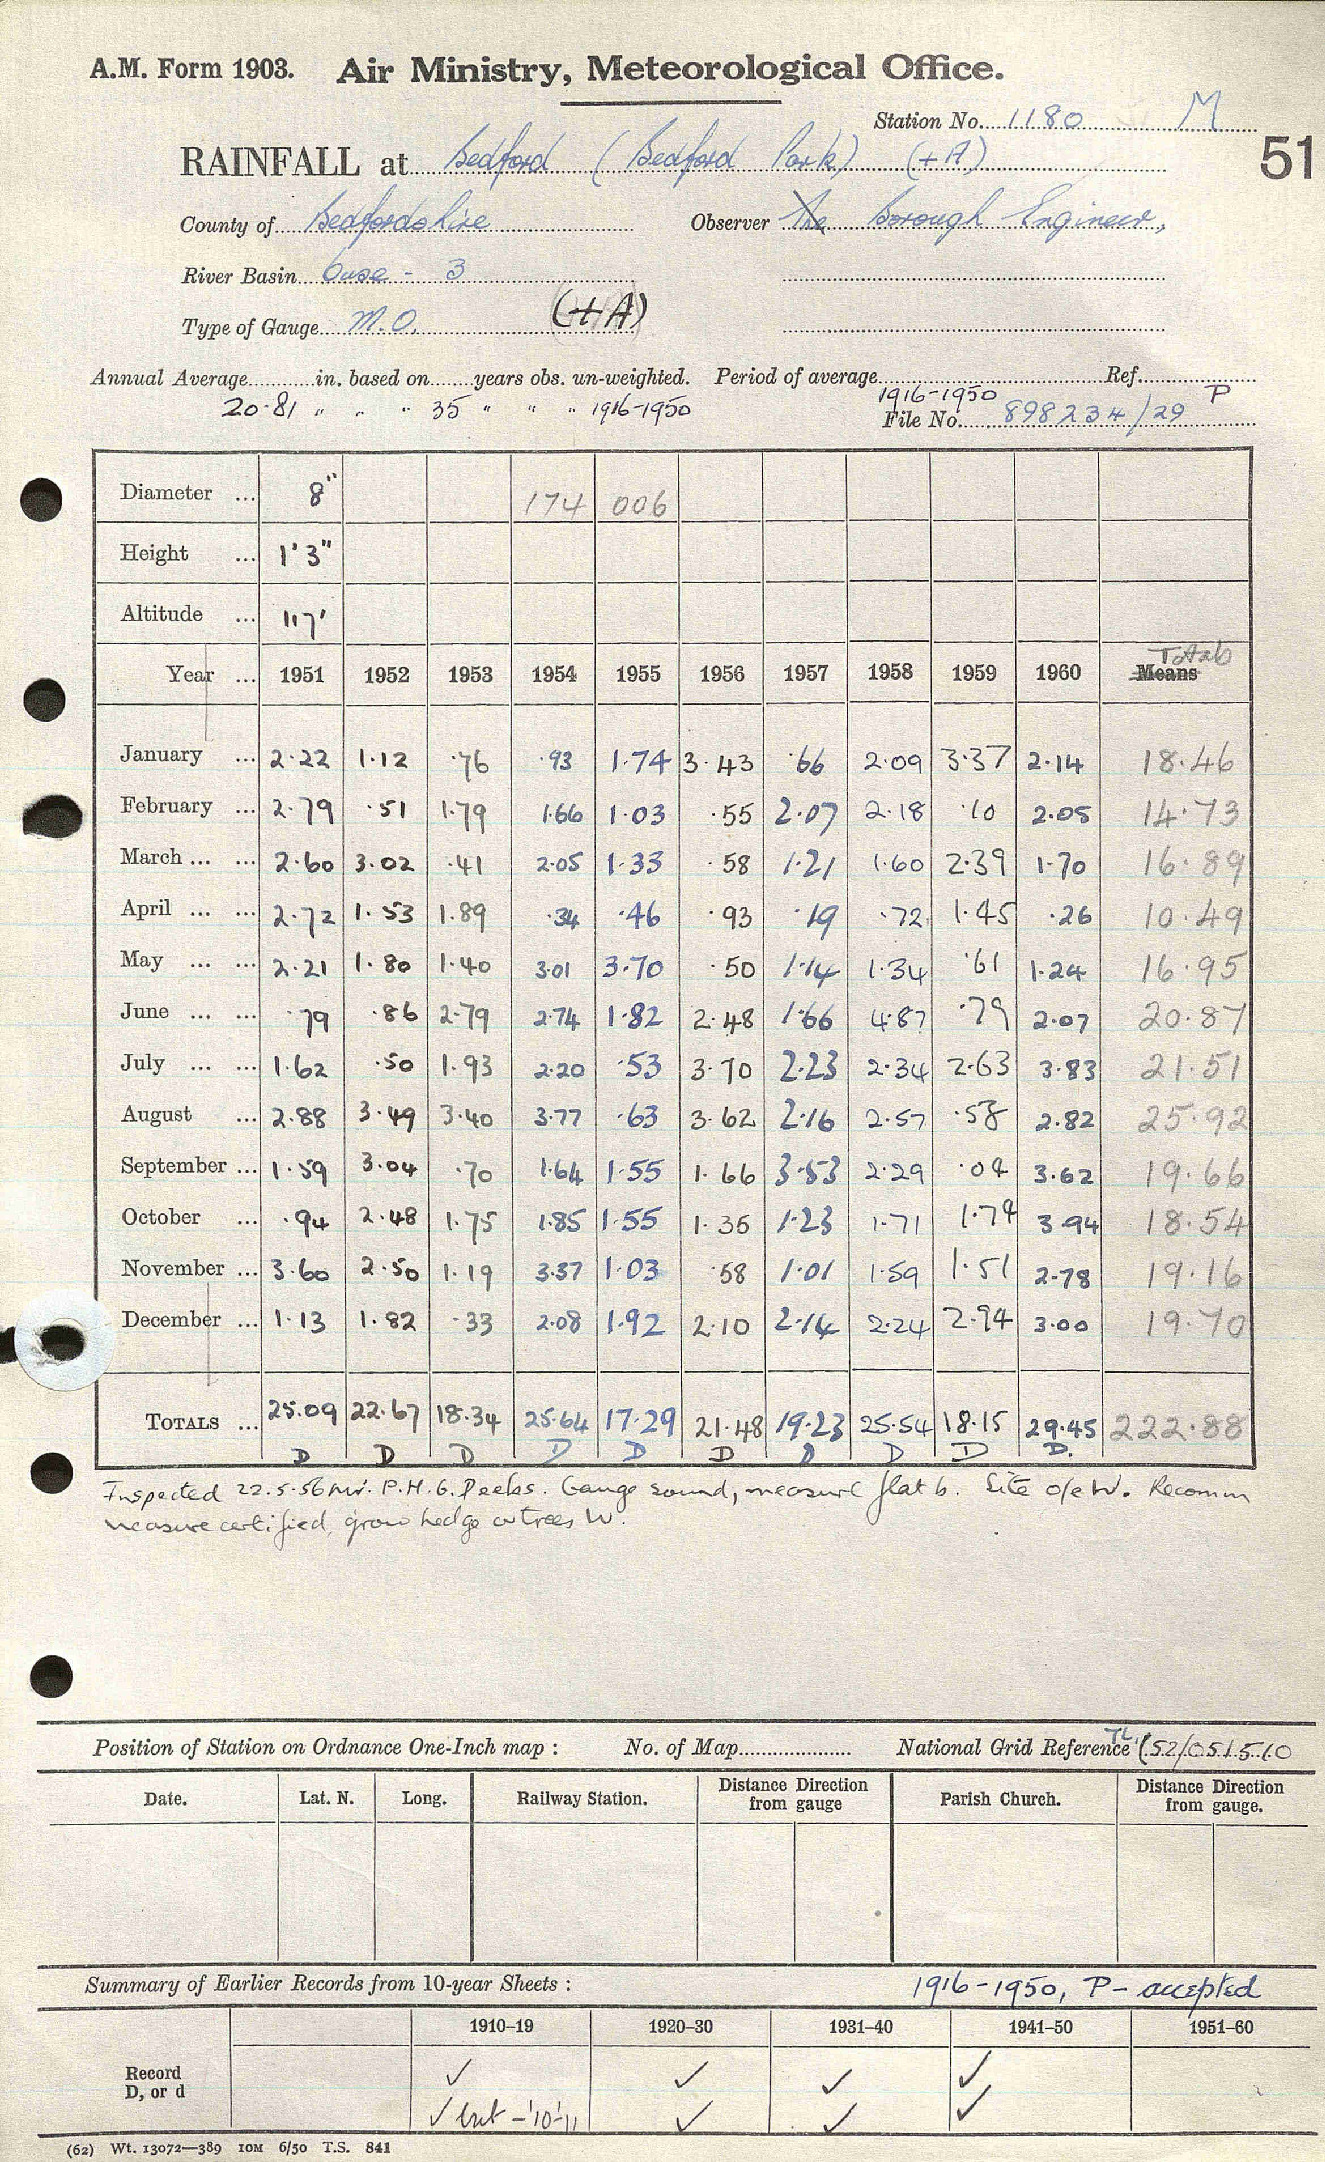 A.M. Form 1903. Air Ministry, Meteorological Office.
Station No. 1180 M
51
RAINFALL at Bedford (Bedford Park) (+A)
County of Bedfordshire Observer The Borough Engineer,
River Basin Ouse - 3
Type of Gauge M.O. (+A)
Annual Average............in. based on........years obs. un-weighted. Period of average 1916-1950 Ref. P
20.81 " " " 35 " " " 1916-1950 File No. 898234/29
Diameter ... 8" 174 006
Height ... 1' 3"
Altitude ... 117'
Year ... 1951 1952 1953 1954 1955 1956 1957 1958 1959 1960 Means Totals
January ... 2.22 1.12 .76 .93 1.74 3.43 .66 2.09 3.37 2.14 18.46
February ... 2.79 .51 1.79 1.66 1.03 .55 2.07 2.18 .10 2.05 14.73
March ... ... 2.60 3.02 .41 2.05 1.33 .58 1.21 1.60 2.39 1.70 16.89
April ... ... 2.72 1.53 1.89 .34 .46 .93 .19 .72 1.45 .26 10.49
May ... ... 2.21 1.80 1.40 3.01 3.70 .50 1.14 1.34 .61 1.24 16.95
June ... ... .79 .86 2.79 2.74 1.82 2.48 1.66 4.87 .79 2.07 20.87
July ... ... 1.62 .50 1.93 2.20 .53 3.70 2.23 2.34 2.63 3.83 21.51
August ... 2.88 3.49 3.40 3.77 .63 3.62 2.16 2.57 .58 2.82 25.92
September ... 1.59 3.04 .70 1.64 1.55 1.66 3.53 2.29 .04 3.62 19.66
October ... .94 2.48 1.75 1.85 1.55 1.35 1.23 1.71 1.74 3.94 18.54
November ... 3.60 2.50 1.19 3.37 1.03 .58 1.01 1.59 1.51 2.78 19.16
December ... 1.13 1.82 .33 2.08 1.92 2.10 2.14 2.24 2.94 3.00 19.70
TOTALS ... 25.09 22.67 18.34 25.64 17.29 21.48 19.23 25.54 18.15 29.45 222.88
D D D D D D D D D D.
Inspected 22.5.56 Mr. P.H.G. Gauge sound, measure flat b. Site o/e W. Recomm
measure certified, grow hedge or trees W.
Position of Station on Ordnance One-Inch map : No. of Map.................... National Grid Reference TL (52/051510
Date. Lat. N. Long. Railway Station. Distance from gauge Direction Parish Church. Distance from gauge. Direction
Summary of Earlier Records from 10-year Sheets : 1916-1950, P- accepted
1910–19 1920–30 1931–40 1941–50 1951–60
Record ✓ ✓ ✓ ✓
D, or d ✓ but -'10-'11 ✓ ✓ ✓
(62) Wt. 13072—389 10M 6/50 T.S. 841